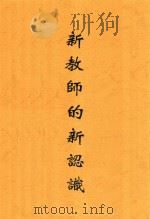 新教師的新認識
mtoou.info mtoou.info